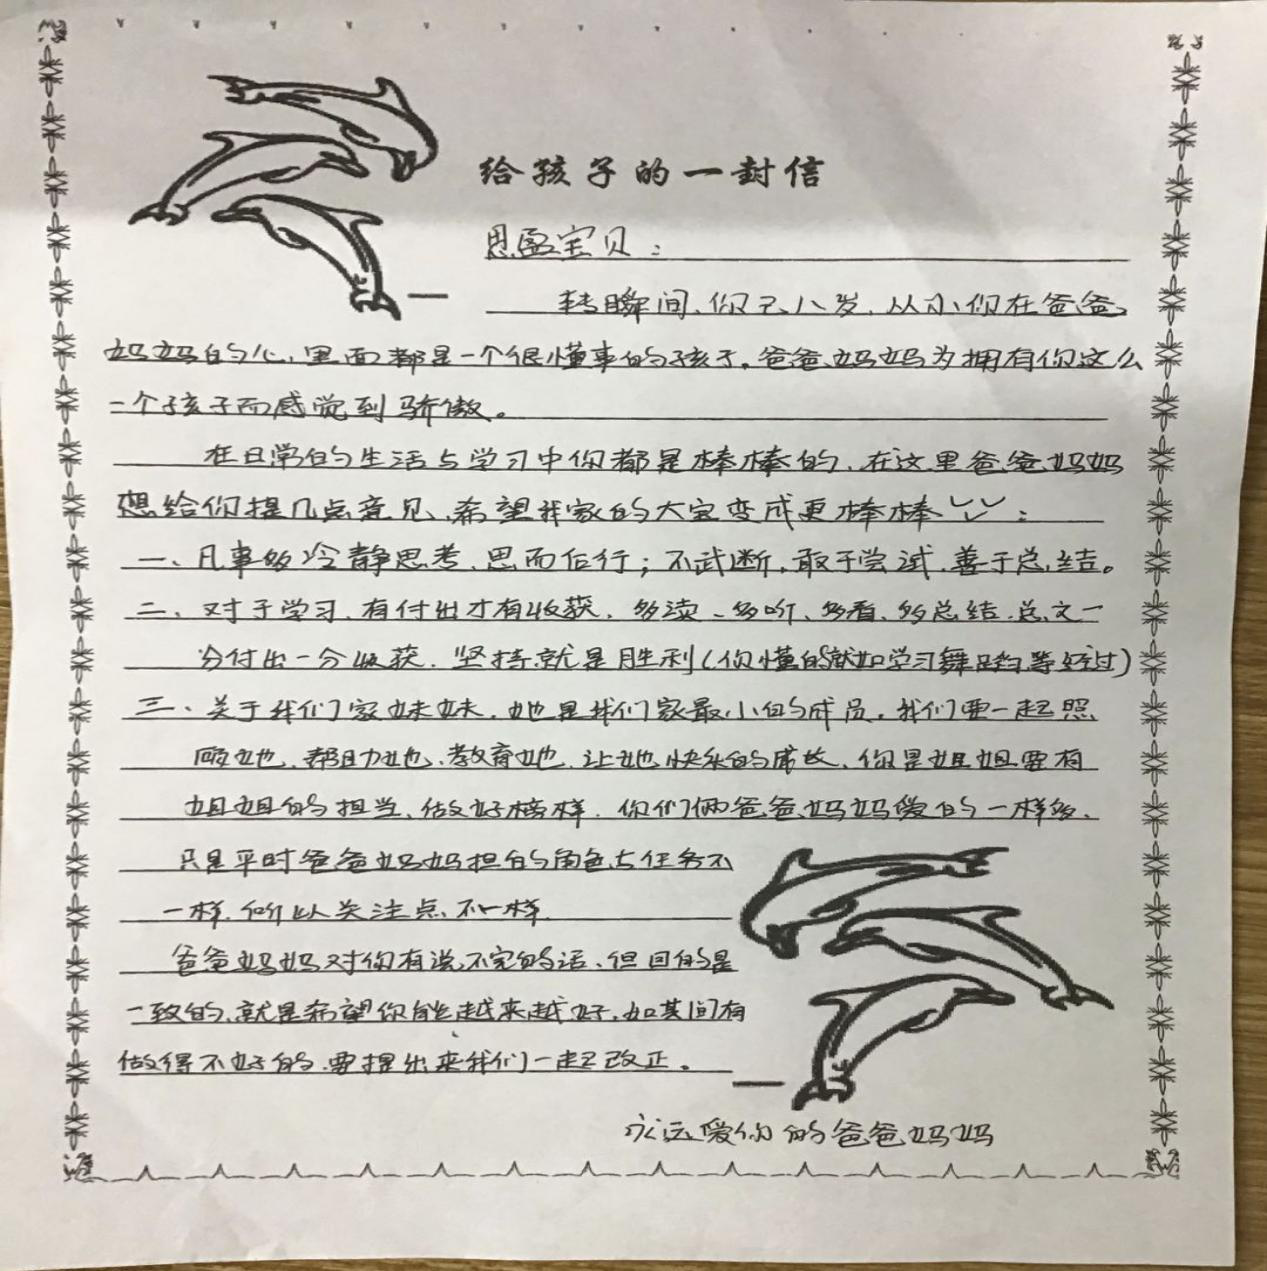 给孩子的一封信
思盈宝贝：
转瞬间、你已八岁、从小你在爸爸
妈妈的心里面都是一个很懂事的孩子。爸爸妈妈为拥有你这么
一个孩子而感觉到骄傲。
在日常的生活与学习中你都是棒棒的、在这里爸爸妈妈
想给你提几点意见、希望我家的大宝变成更棒棒：
一、凡事多冷静思考、思而后行；不武断、敢于尝试、善于总结。
二、对于学习、有付出才有收获、多读、多听、多看、多总结、总之一
分付出一分收获、坚持就是胜利(你懂的就如学习舞蹈等经过)
三、关于我们家妹妹、她是我们家最小的成员。我们要一起照
顾她、帮助她、教育她、让她快乐的成长、你是姐姐要有
姐姐的担当、做好榜样、你们俩爸爸妈妈爱的一样多、
只是平时爸爸妈妈担的角色与任务不
一样、所以关注点不一样、
爸爸妈妈对你有说不完的话、但目的是
一致的、就是希望你能越来越好、如其间有
做得不好的、要提出来我们一起改正。
永远爱你的爸爸妈妈